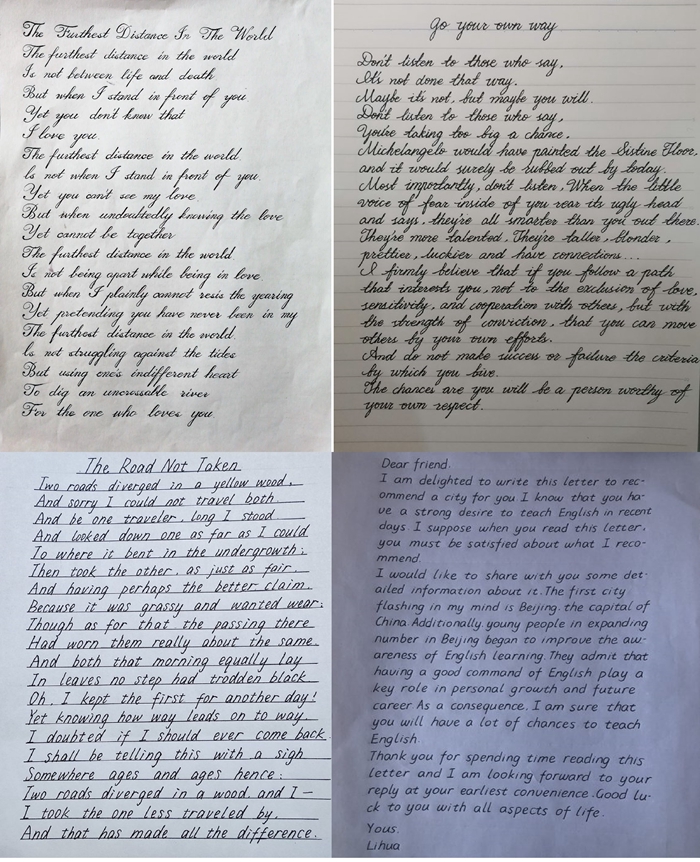 The Furthest Distance In The World
The furthest distance in the world
Is not between life and death
But when I stand in front of you
Yet you don't know that
I love you.
The furthest distance in the world.
Is not when I stand in front of you.
Yet you can't see my love
But when undoubtedly knowing the love
Yet cannot be together
The furthest distance in the world
Is not being apart while being in love
But when I plainly cannot resis the yearing
Yet pretending you have never been in my
The furthest distance in the world.
Is not struggling against the tides
But using one's indifferent heart
To dig an uncrossable river
For the one who loves you
Go your own way
Don't listen to those who say,
It's not done that way.
Maybe it's not, but maybe you will.
Don't listen to those who say,
You're taking too big a chance.
Michelangelo would have painted the Sistine Floor,
and it would surely be rubbed out by today.
Most importantly, don't listen, When the little
voice of fear inside of you rear its ugly head
and says, they're all smarter than you out there.
They're more talented. They're taller, blonder,
prettier, luckier and have connections...
I firmly believe that if you follow a path
that interests you, not to the exclusion of love,
sensitivity, and cooperation with others, but with
the strength of conviction, that you can move
others by your own efforts.
And do not make success or failure the criteria
by which you live.
The chances are you will be a person worthy of
your own respect.
The Road Not Taken
Two roads diverged in a yellow wood,
And sorry I could not travel both
And be one traveler, long I stood
And looked down one as far as I could
To where it bent in the undergrowth;
Then took the other, as just as fair.
And having perhaps the better claim.
Because it was grassy and wanted wear;
Though as for that the passing there
Had worn them really about the same.
And both that morning equally lay
In leaves no step had trodden black.
Oh, I kept the first for another day!
Yet knowing how way leads on to way.
I doubted if I should ever come back.
I shall be telling this with a sigh
Somewhere ages and ages hence:
Two roads diverged in a wood, and I—
I took the one less traveled by,
And that has made all the difference.
Dear friend.
I am delighted to write this letter to rec-
ommend a city for you I know that you ha-
ve a strong desire to teach English in recent
days. I suppose when you read this letter,
you must be satisfied about what I reco-
mmend.
I would like to share with you some det-
ailed information about it. The first city
flashing in my mind is Beijing, the capital of
China. Additionally, youny people in expanding
number in Beijing began to improve the aw-
areness of English learning. They admit that
having a good command of English play a
key role in personal growth and future
career. As a consequence. I am sure that
you will have a lot of chances to teach
English.
Thank you for spending time reading this
letter and I am looking forward to your
reply at your earliest convenience. Good lu-
ck to you with all aspects of life.
Yous.
Lihua